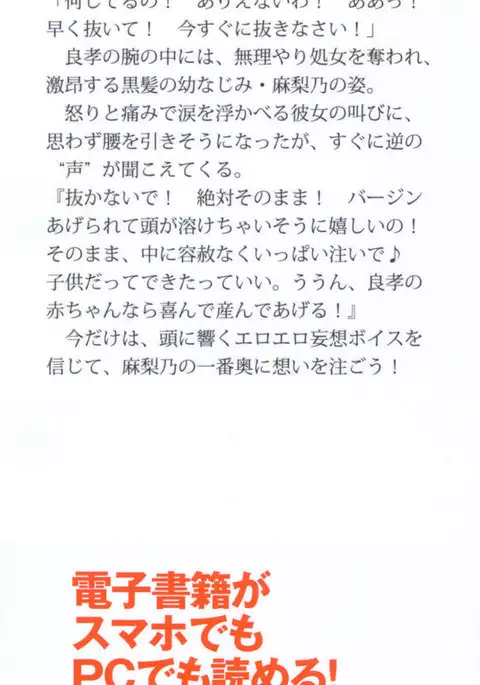 「何してるの！　ありえないわ！　ああっ！
早く抜いて！　今すぐに抜きなさい！」
良孝の腕の中には、無理やり処女を奪われ、
激昂する黒髪の幼なじみ・麻梨乃の姿。
怒りと痛みで涙を浮かべる彼女の叫びに、
思わず腰を引きそうになったが、すぐに逆の
“声”が聞こえてくる。
『抜かないで！　絶対そのまま！　バージン
あげられて頭が溶けちゃいそうに嬉しいの！
そのまま、中に容赦なくいっぱい注いで♪
子供だってできたっていい。ううん、良孝の
赤ちゃんなら喜んで産んであげる！』
今だけは、頭に響くエロエロ妄想ボイスを
信じて、麻梨乃の一番奥に想いを注ごう！
電子書籍が
スマホでも
PCでも読める！